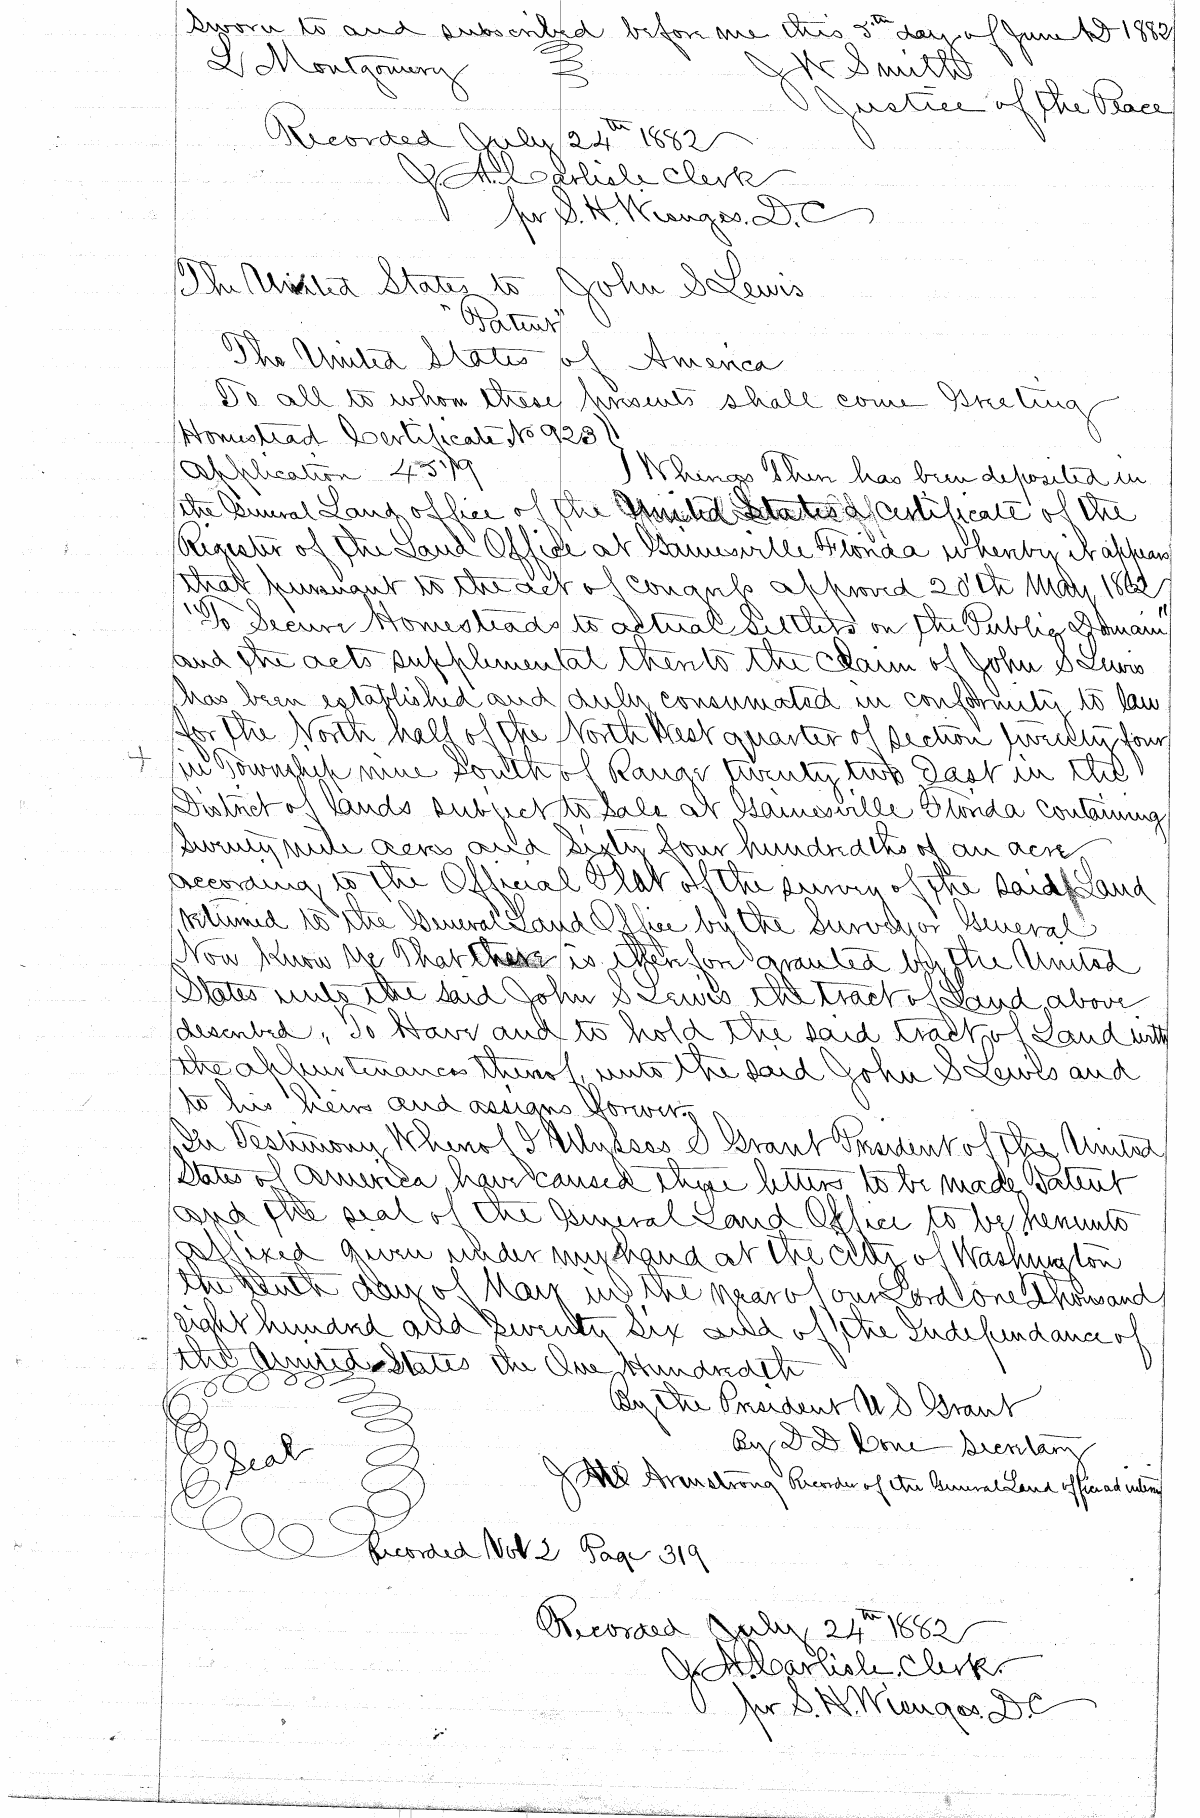 Sworn to and subscribed before me this 5th day of June AD 1882
L Montgomery J W Smith
Justice of the Peace
Recorded July 24th 1882
J. A. Carlisle Clerk
pr S. H. Wienges. D. C
The United States to John S Lewis
"Patent"
The United States of America
To all to whom these presents shall come Greeting
Homestead Certificate No 923
Application 4579 Whereas There has been deposited in
the General Land office of the United States a certificate of the
Register of the Land Office at Gainesville Florida whereby it appears
that pursuant to the act of Congress approved 20th May 1862
"To Secure Homesteads to actual Settlers on the Public Domain"
and the acts supplemental thereto the claim of John S Lewis
has been established and duly consumated in conformity to law
for the North half of the North West quarter of section twenty four
in Township nine South of Range twenty two East in the
District of lands subject to Sale at Gainesville Florida containing
Seventy nine acres and Sixty four hundredths of an acre
according to the Official Plat of the survey of the said Land
returned to the General Land Office by the Surveyor General
Now Know Ye That there is therefore granted by the United
States unto the said John S Lewis the tract of Land above
described, To Have and to hold the said tract of Land with
the appurtenances thereof, unto the said John S Lewis and
to his heirs and assigns forever.
In Testimony Whereof I Ulysses S Grant President of the United
States of America have caused these letters to be made Patent
and the seal of the General Land Office to be hereunto
affixed given under my hand at the city of Washington
the tenth day of May in the year of our Lord one Thousand
eight hundred and Seventy Six and of the Independance of
the United States the One Hundredth
By the President U S Grant
Seal By D D Cone Secretary
Armstrong Recorder of the General Land office ad interim
Recorded Vol 2 Page 319
Recorded July 24th 1882
J. A. Carlisle. Clerk.
pr S. H. Wienges. D. C